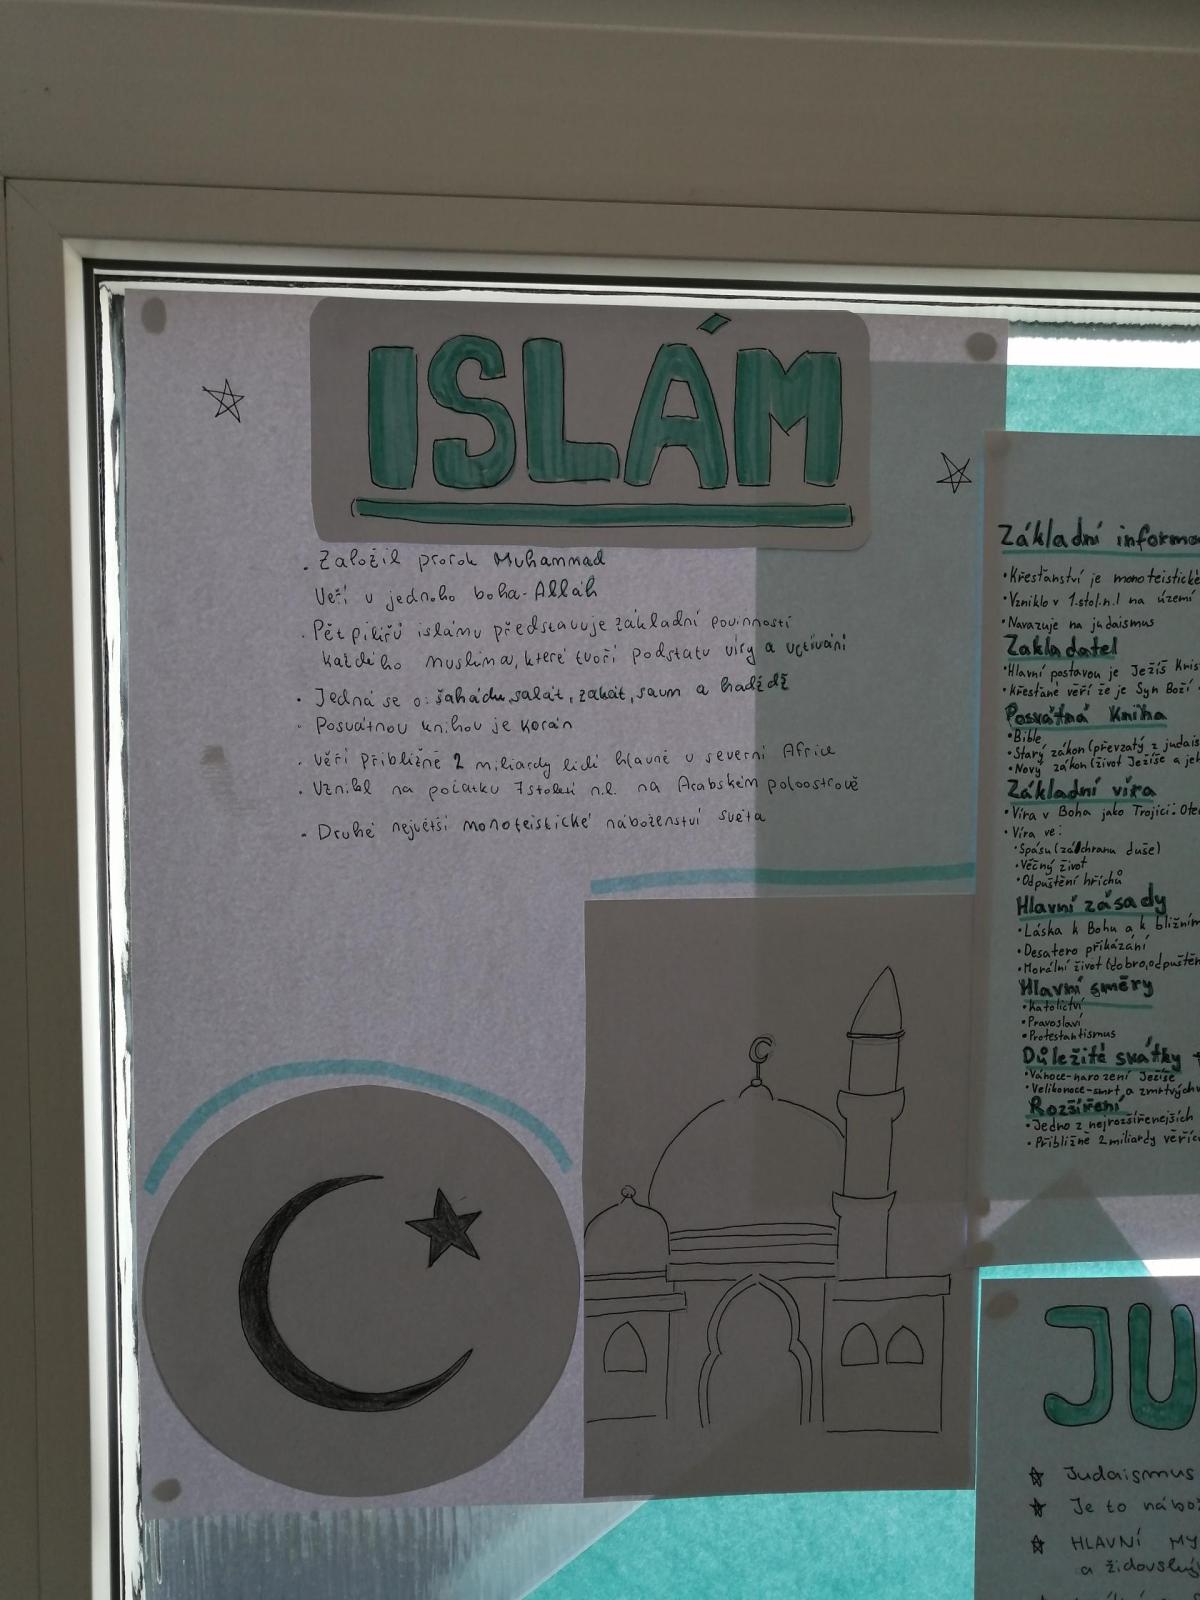 ISLÁM
. Založil prorok Muhammad
Veří v jednoho boha-Alláh
. Pět pilířů islámu představuje základní povinnosti
každého muslima, které tvoří podstatu víry a uctívání
. Jedná se o: šahádu, salát, zakát, saum a hadždž
. Posvátnou knihou je Korán
. Věří přibližně 2 miliardy lidí hlavně v severní Africe
. Vznikl na počátku 7 století n.l. na Arabském poloostrově
. Druhé největší monoteistické náboženství světa
Základní
•Křesťanství je monoteistické
•Vzniklo v 1.stol.n.l na území
•Navazuje na judaismus
Zakladatel
•Hlavní postavou je Ježíš
•Křesťané věří že je Syn Boží
Posvátná Kniha
•Bible
•Starý zákon (převzatý z
•Nový zákon (život Ježíše a
Základní víra
•Víra v Boha jako Trojici:
•Víra ve:
•Spásu (záchranu duše)
•Věčný život
•Odpuštění hříchů
Hlavní zásady
•Láska k Bohu a k
•Desatero přikázání
•Morální život (dobro,
Hlavní směry
•Katolictví
•Pravoslaví
•Protestantismus
Důležité svátky
•Vánoce-narození Ježíše
•Velikonoce-smrt a
Rozšíření
•Jedno z nejrozšířenejších
•Přibližně 2 miliardy
JU
Judaismus
Je to
HLAVNÍ
a